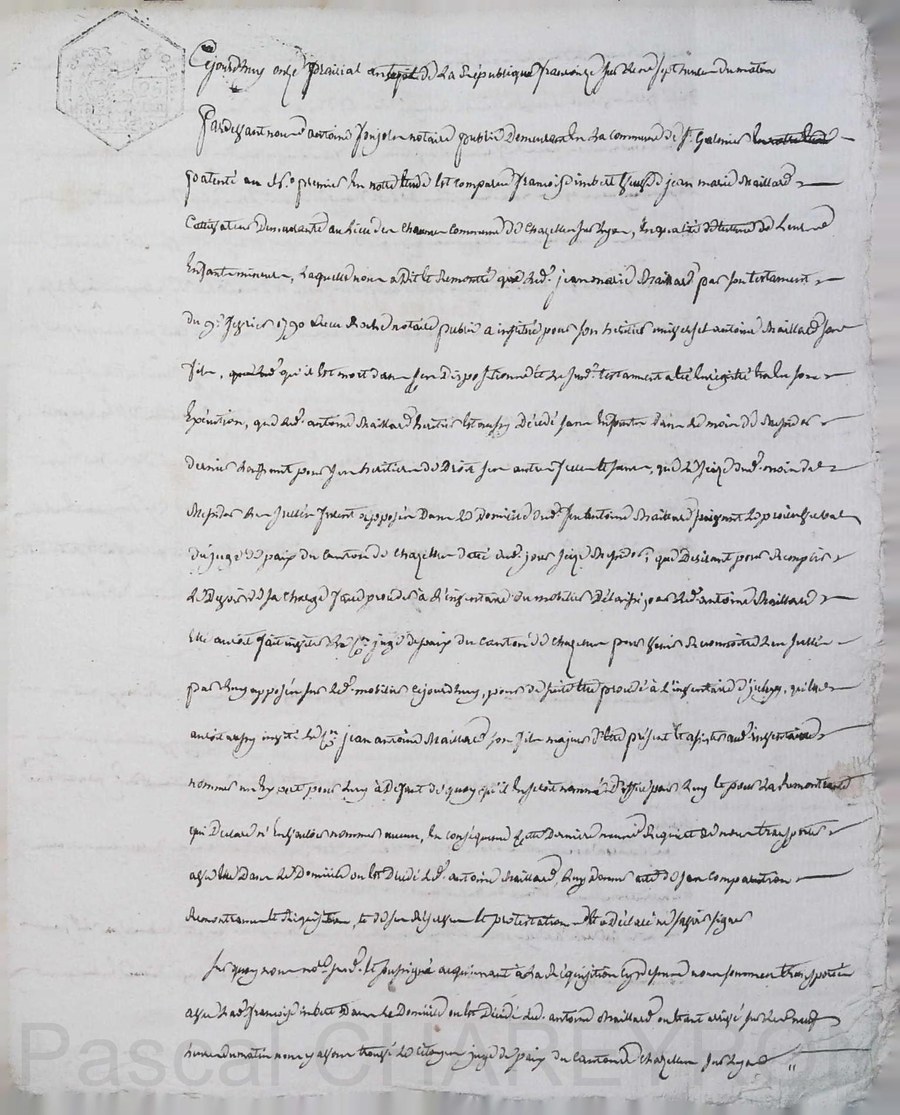 Cejourdhuy onze prairial an sept de la République françoise sur les sept heures du matin
Pardevant nous antoine notaire public demeurant en la commune de St Galmier
patenté au en notre étude est comparue françoise imbert veuve de jean marie Maillard
Cultivateur demeurante au lieu de commune de Chazelles sur Lyon, en qualité de tutrice de leurs
Enfants mineurs, laquelle nous a dit et remontré que led. jean marie Maillard par son testament
du 9e février 1790 reçu notaire public a institué pour son héritier universel antoine Maillard son
fils, qu'il est mort dans ses dispositions et le sud. testament a été enregistré
Exécution, que led. antoine Maillard héritier est aussi décédé sans enfants dans le mois de Messidor
dernier pour ses héritiers de droit ses autres frères et sœurs, que le seize dud. mois de
Messidor les scellés furent apposés dans le domicile dud. feu antoine Maillard suivant le procès verbal
du juge de paix du canton de Chazelles daté dud. jour seize Messidor, que désirant pour remplir
le de sa charge faire procéder à l'inventaire du mobilier délaissé par led. antoine Maillard
Elle auroit fait inviter le cen juge de paix du canton de Chazelles pour venir reconnoitre les scellés
par luy apposés sur led. mobilier cejourdhuy, pour de suite être procédé à l'inventaire d'iceluy, qu'elle
auroit aussy invité le cen jean antoine Maillard son fils majeur d'être présent et assister aud. inventaire
nommer un expert pour luy à défaut de quoy qu'il en seroit nommé d'office pour luy et pour la remontrante
qui déclare n'en vouloir nommer aucun, en conséquence cette dernière nous requiert de nous transporter
avec elle dans le domicile où est décédé led. antoine Maillard, luy donner acte de sa comparution
remontrance et réquisition, et de ses réserves et protestation et a déclaré ne savoir signer
sur quoy nous notre sud. et soussigné acquiesçant à la réquisition cy dessus nous sommes transportés
avec lad. françoise imbert dans le domicile où est décédé led. antoine Maillard où étant arrivé sur les neuf
heures du matin nous y avons trouvé le citoyen juge de paix du canton de Chazelles sur Lyon
Pascal CHAREYRON